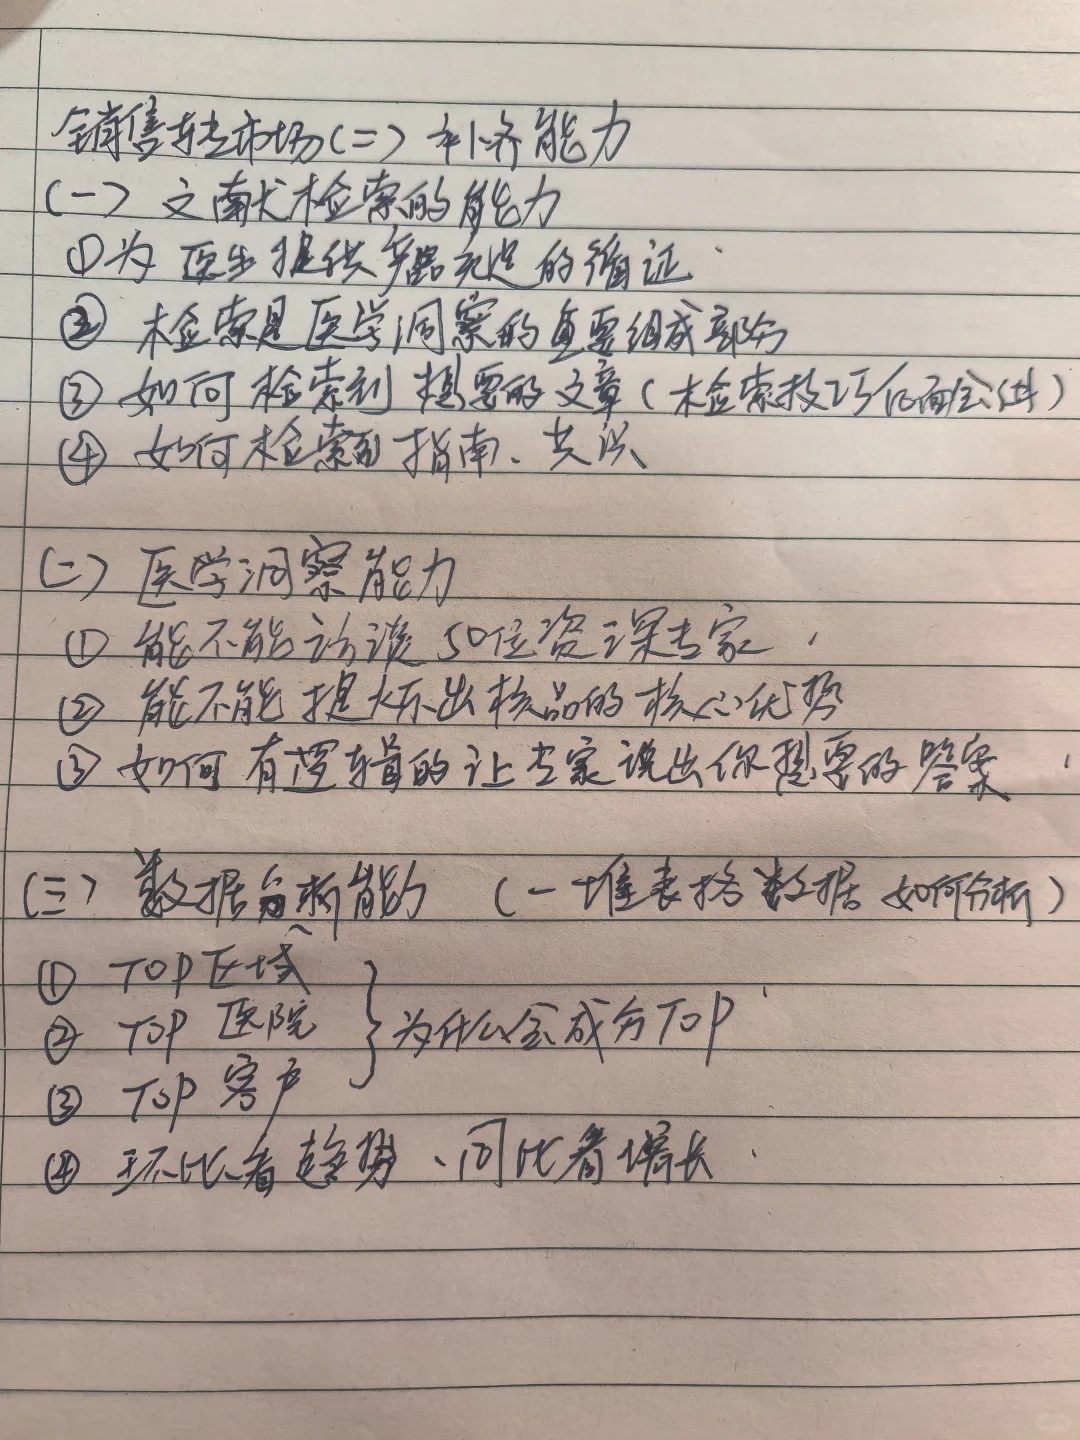 销售转市场(二) 补齐能力
(一) 文献检索的能力
①为医生提供 充足的循证
② 检索是医学洞察的重要组成部分
③ 如何检索到想要的文章(检索技巧后面会讲)
④ 如何检索到指南、共识
(二) 医学洞察能力
① 能不能访谈50位资深专家
② 能不能提炼出核品的核心优势
③ 如何有逻辑的让专家说出你想要的答案
(三) 数据分析能力 (一堆表格数据如何分析)
① TOP区域
② TOP 医院
③ TOP 客户
为什么会成为TOP
④ 环比看趋势、同比看增长